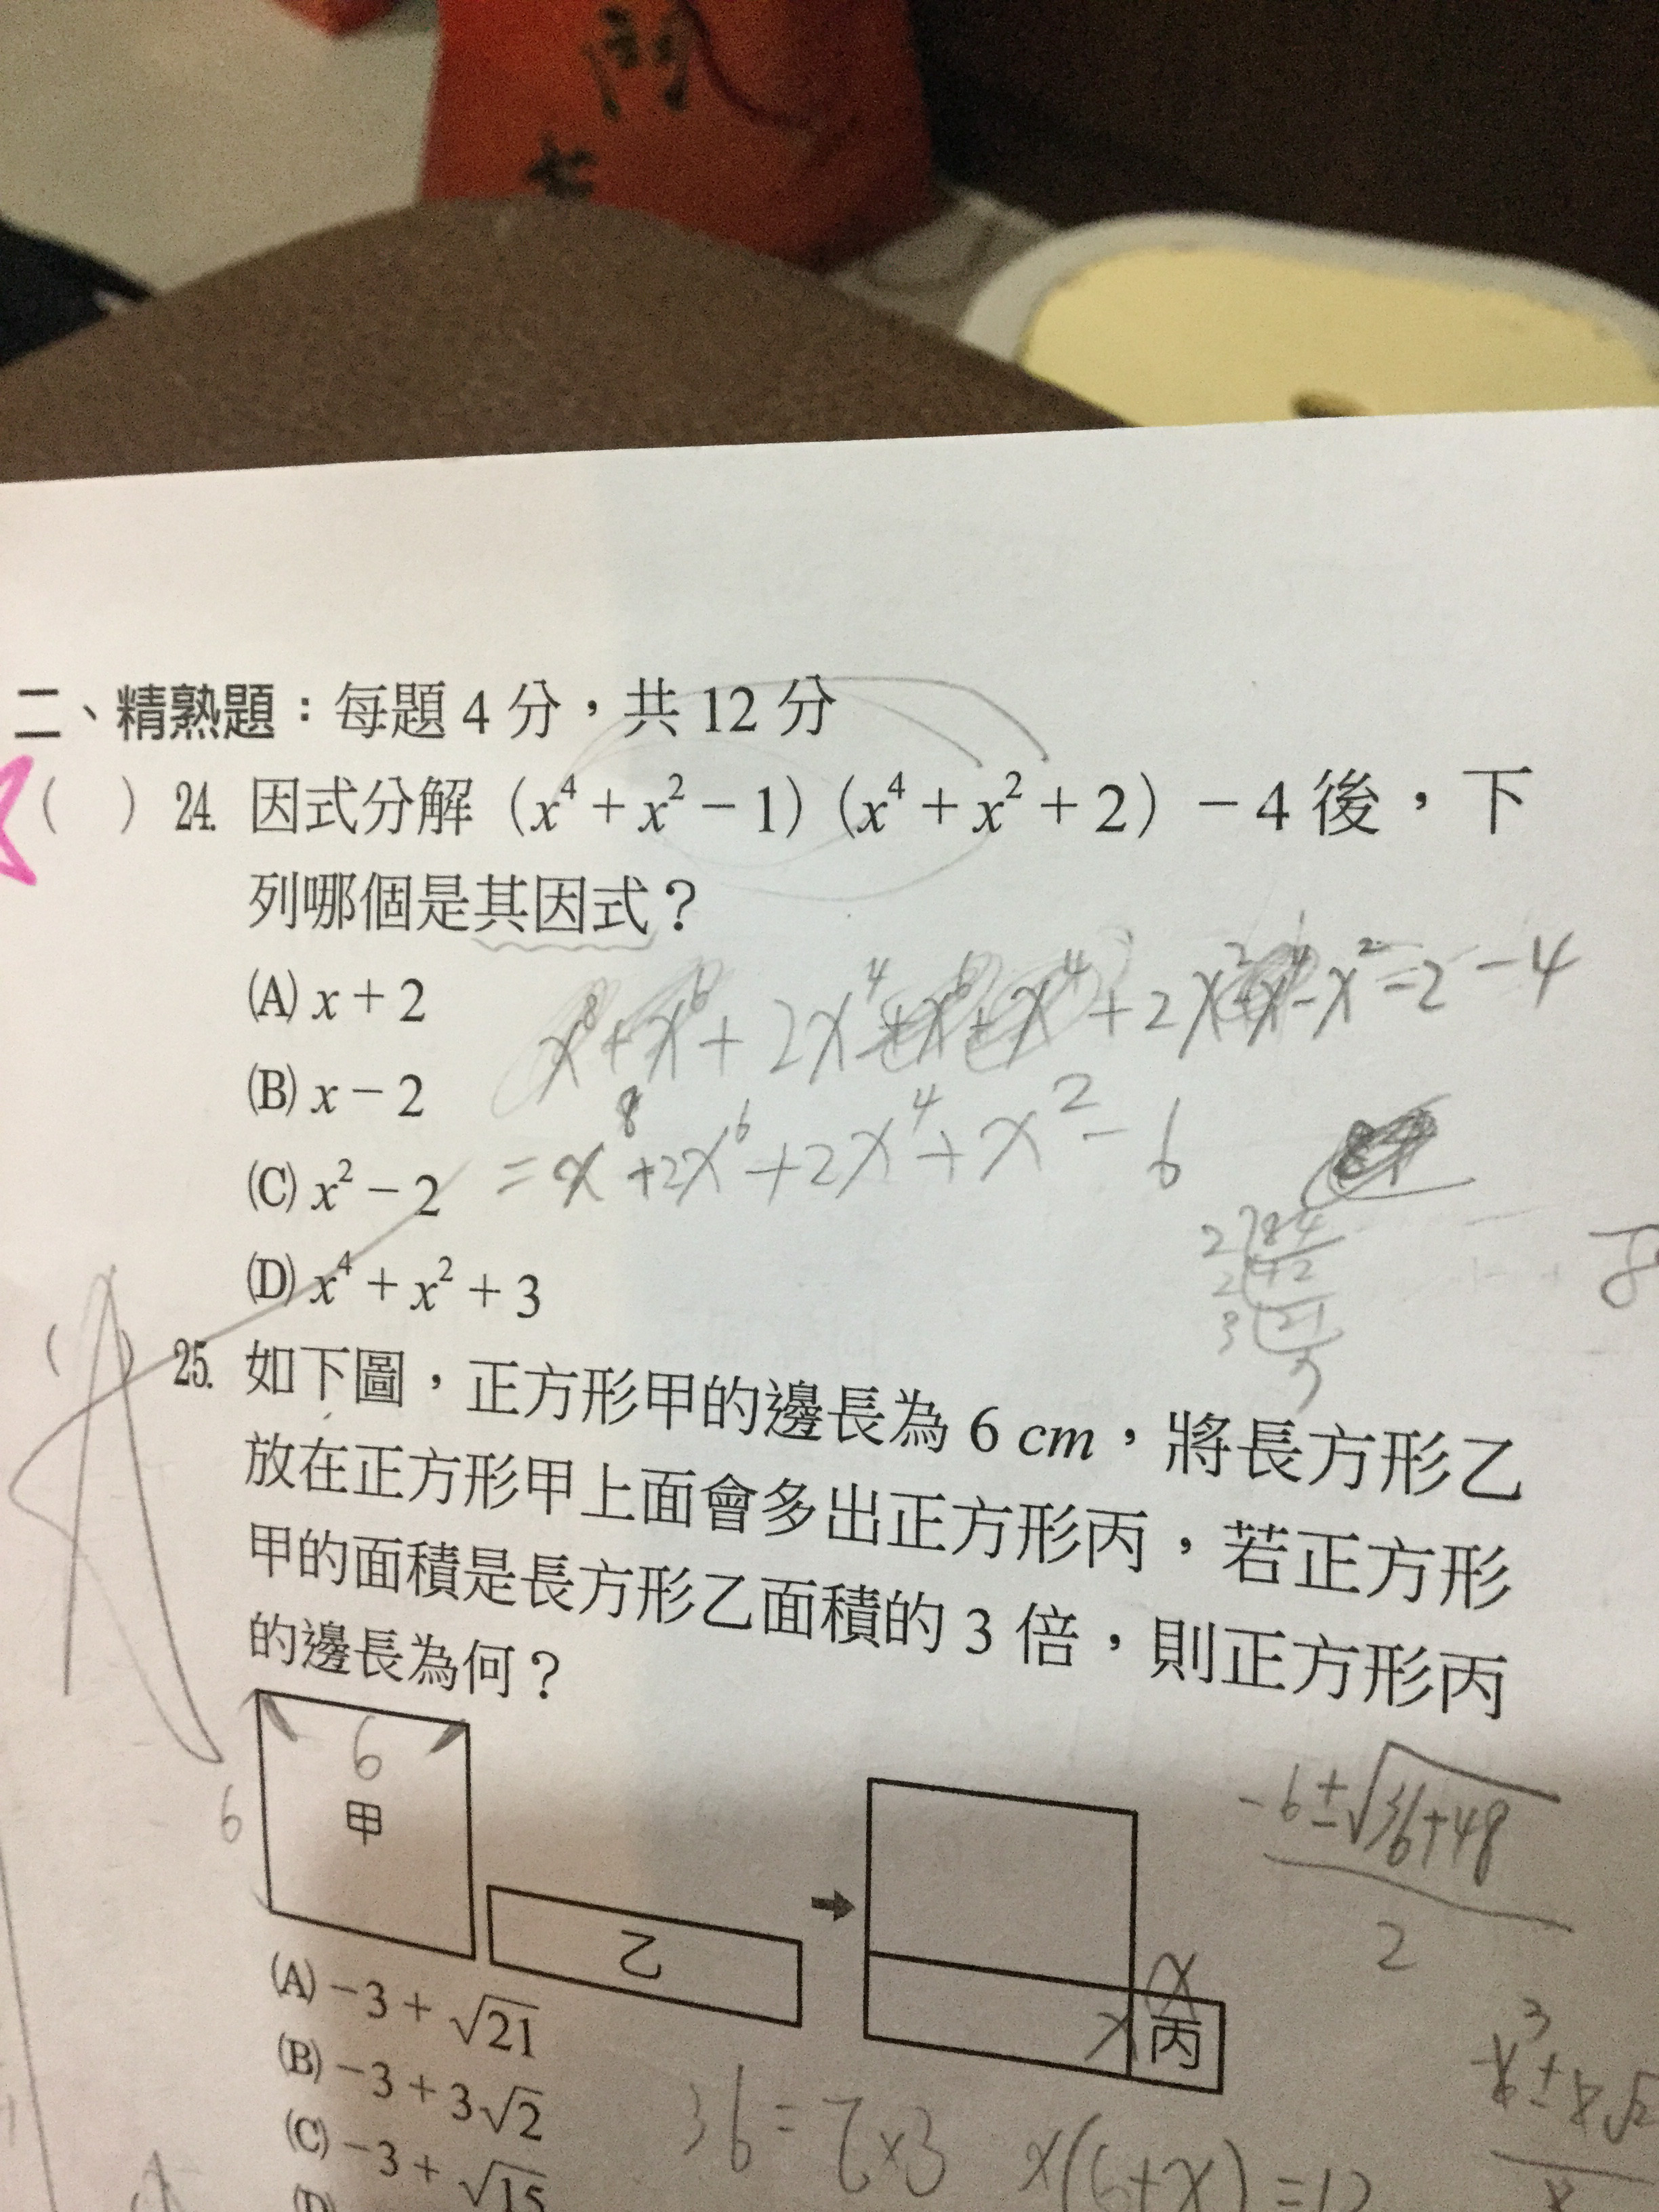 二、精熟題：每題 4 分，共 12 分
（ ）24. 因式分解（x⁴ + x² − 1）（x⁴ + x² + 2）− 4 後，下
列哪個是其因式？
(A) x + 2
(B) x − 2
(C) x² − 2
(D) x⁴ + x² + 3
= x⁸ + 2x⁶ + 2x⁴ + x² − 6
（ ）25. 如下圖，正方形甲的邊長為 6 cm，將長方形乙
放在正方形甲上面會多出正方形丙，若正方形
甲的面積是長方形乙面積的 3 倍，則正方形丙
的邊長為何？
A
6
6
甲
乙
x
x
丙
−6 ± √36+48
2
(A) −3 + √21
(B) −3 + 3√2
(C) −3 + √15
(D)
36 = 乙×3
x(6+x) = 12